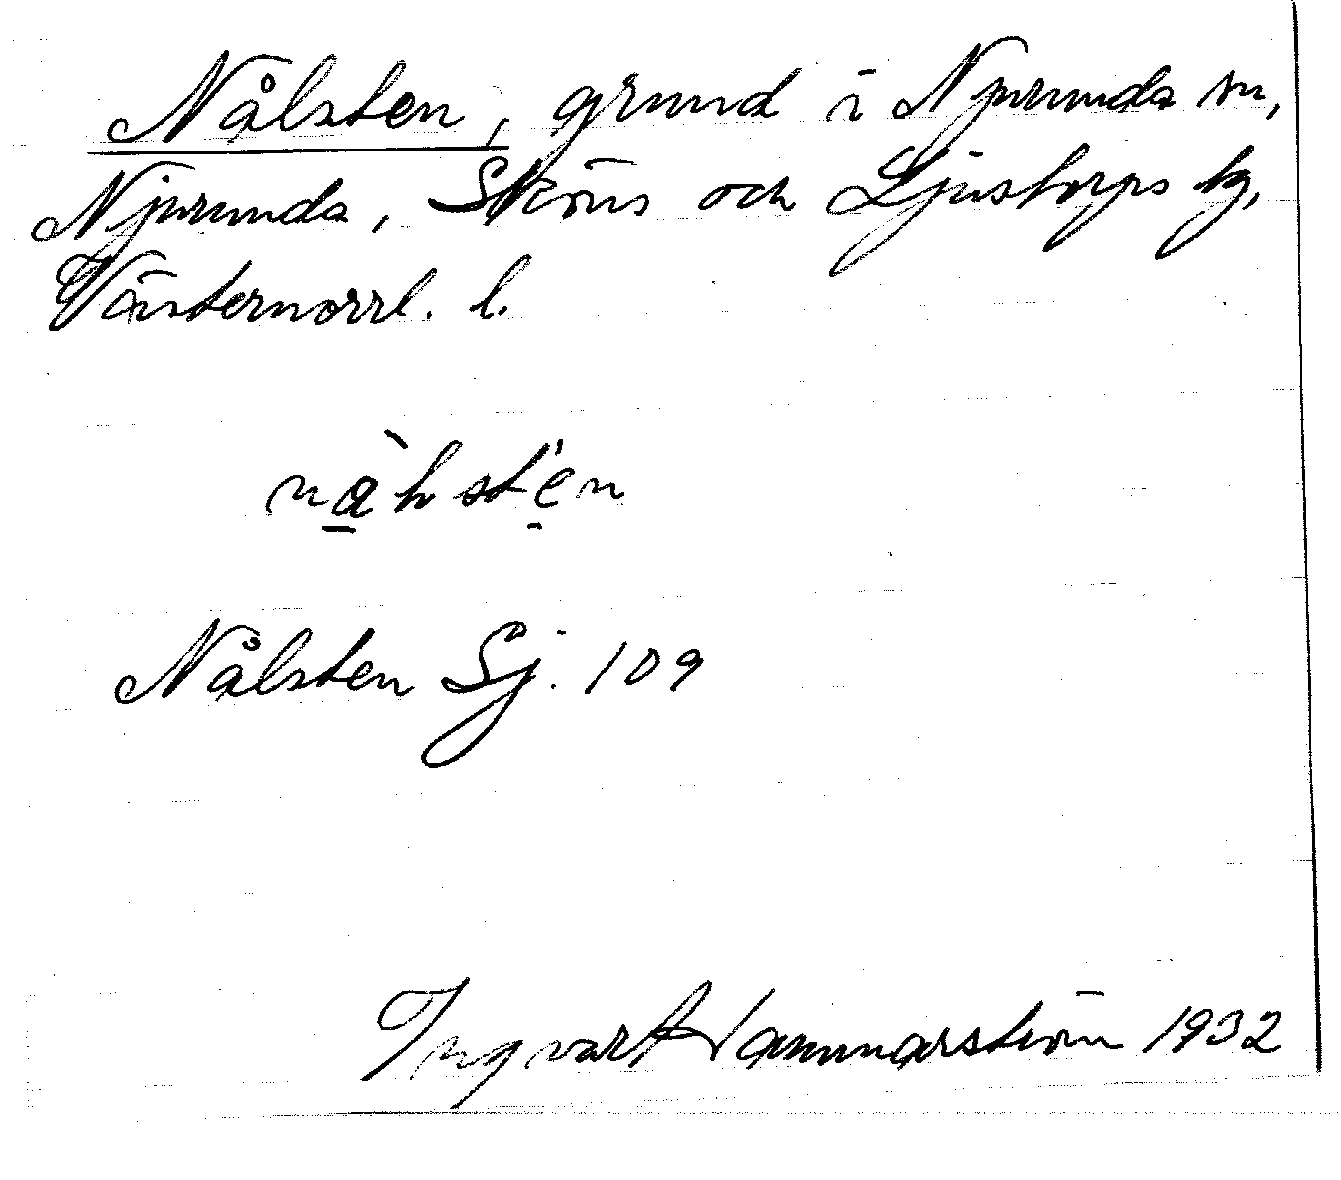 Nålsten, grund i Njurunda sn,
Njurunda, Sköns och Ljustorps tg,
Västernorrl. l.
Nålsten Sj. 109
Ingvar Hammarström 1932